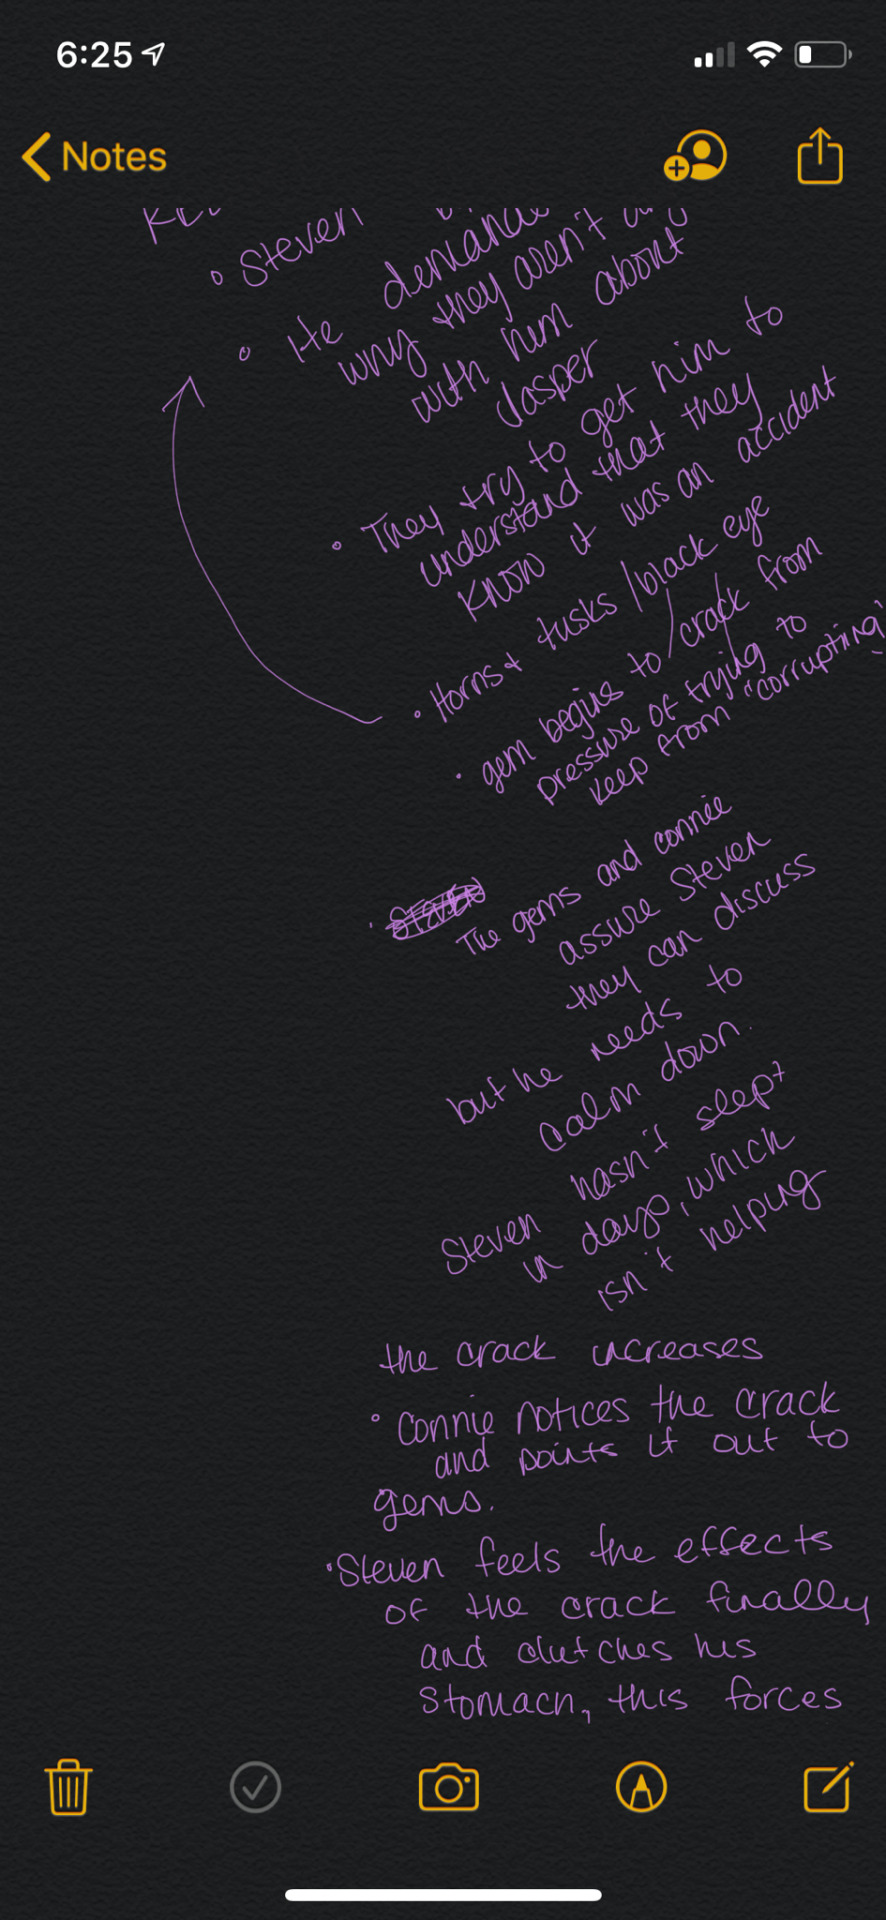 6:25
Notes
• Steven
• He demands
why they aren't
with him about
Jasper
• They try to get him to
understand that they
know it was an accident
• Horns + tusks / black eye
• gem begins to / crack / from
pressure of trying to
keep from "corrupting"
• Steven
The gems and connie
assure Steven
they can discuss
but he needs to
calm down.
Steven hasn't slept
in days, which
isn't helping
the crack increases
• Connie notices the crack
and points it out to
gems.
• Steven feels the effects
of the crack finally
and clutches his
stomach, this forces